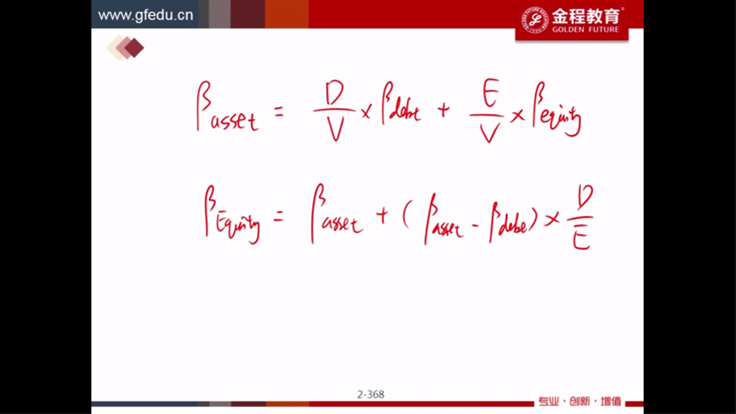 www.gfedu.cn
金程教育®
GOLDEN FUTURE
β asset = D/V × β debt + E/V × β equity
β Equity = β asset + ( β asset - β debt ) × D/E
2-368
专业·创新·增值